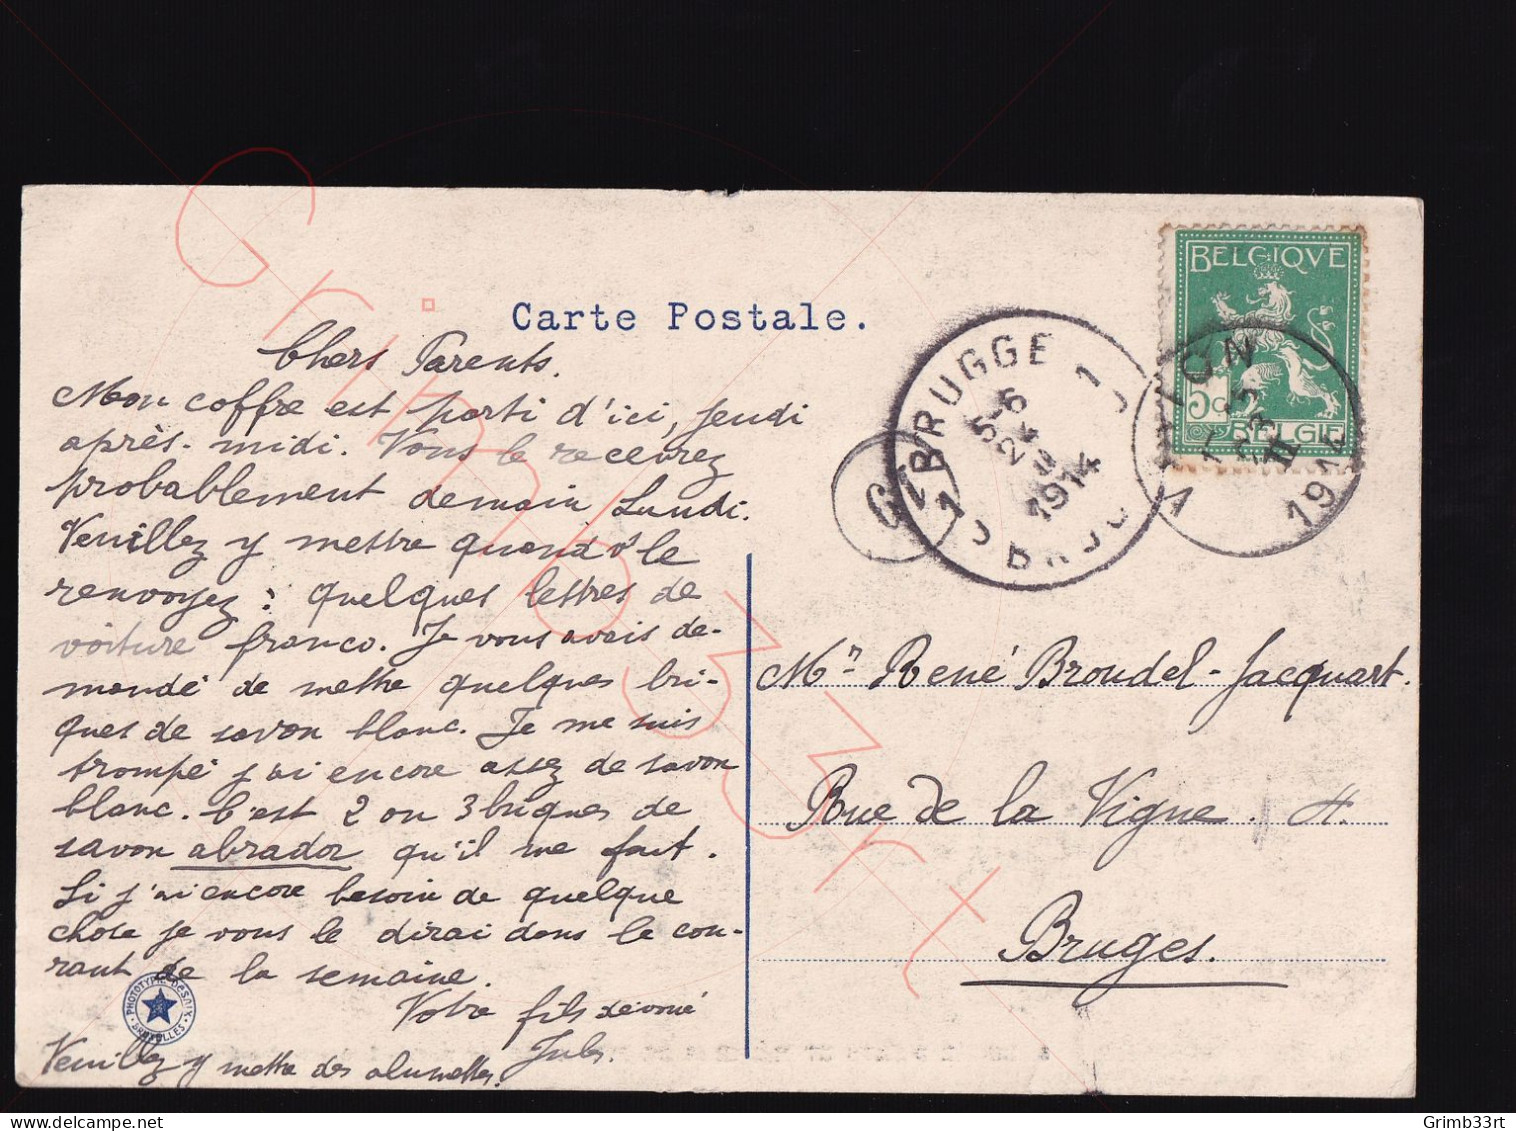 Carte Postale.
Chers Parents.
Mon coffre est parti d'ici, jeudi
après-midi. Vous le recevrez
probablement demain Lundi.
Veuillez y mettre quand v's le
renvoyez : quelques lettres de
voiture franco. Je vous avais de-
mandé de mettre quelques bri-
ques de savon blanc. Je me suis
trompé j'ai encore assez de savon
blanc. C'est 2 ou 3 briques de
savon abrador qu'il me faut.
Si j'ai encore besoin de quelque
chose je vous le dirai dans le cou-
rant de la semaine.
Votre fils dévoué
Jules.
Veuillez y mettre des alumettes.
PHOTOTYPIE DESAIX
BRUXELLES
BELGIQVE
5c
BELGIE
BRUGGE 1
5-6
24
1914
1914
Mr René Broudel-Jacquart.
Rue de la Vigne. 4.
Bruges.
Grimb33rt
Grimb33rt